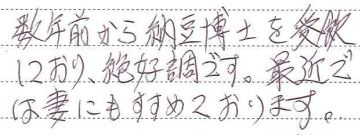 数年前から納豆博士を愛飲
しており、絶好調です。最近で
は妻にもすすめております。